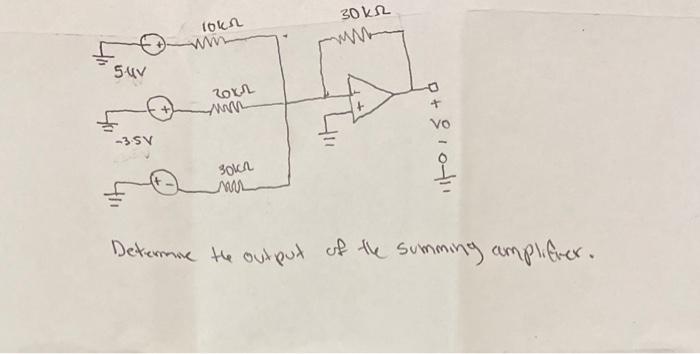 10kΩ
30kΩ
- +
5.4V
20kΩ
- +
+
-3.5V
- +
+
Vo
-
30kΩ
+ -
Determine the output of the summing amplifier.